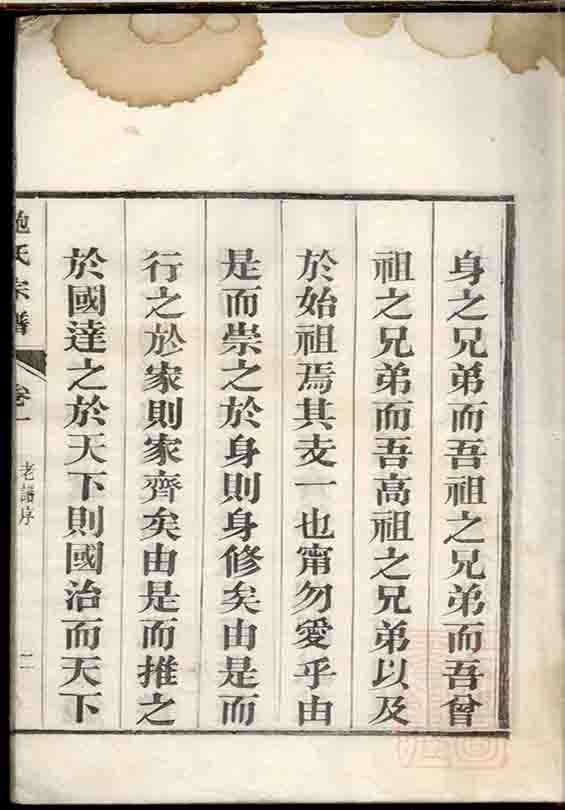 身之兄弟而吾祖之兄弟而吾曾
祖之兄弟而吾高祖之兄弟以及
於始祖焉其支一也甯勿愛乎由
是而崇之於身則身修矣由是而
行之於家則家齊矣由是而推之
於國達之於天下則國治而天下
鮑氏宗譜
卷一
老譜序
二